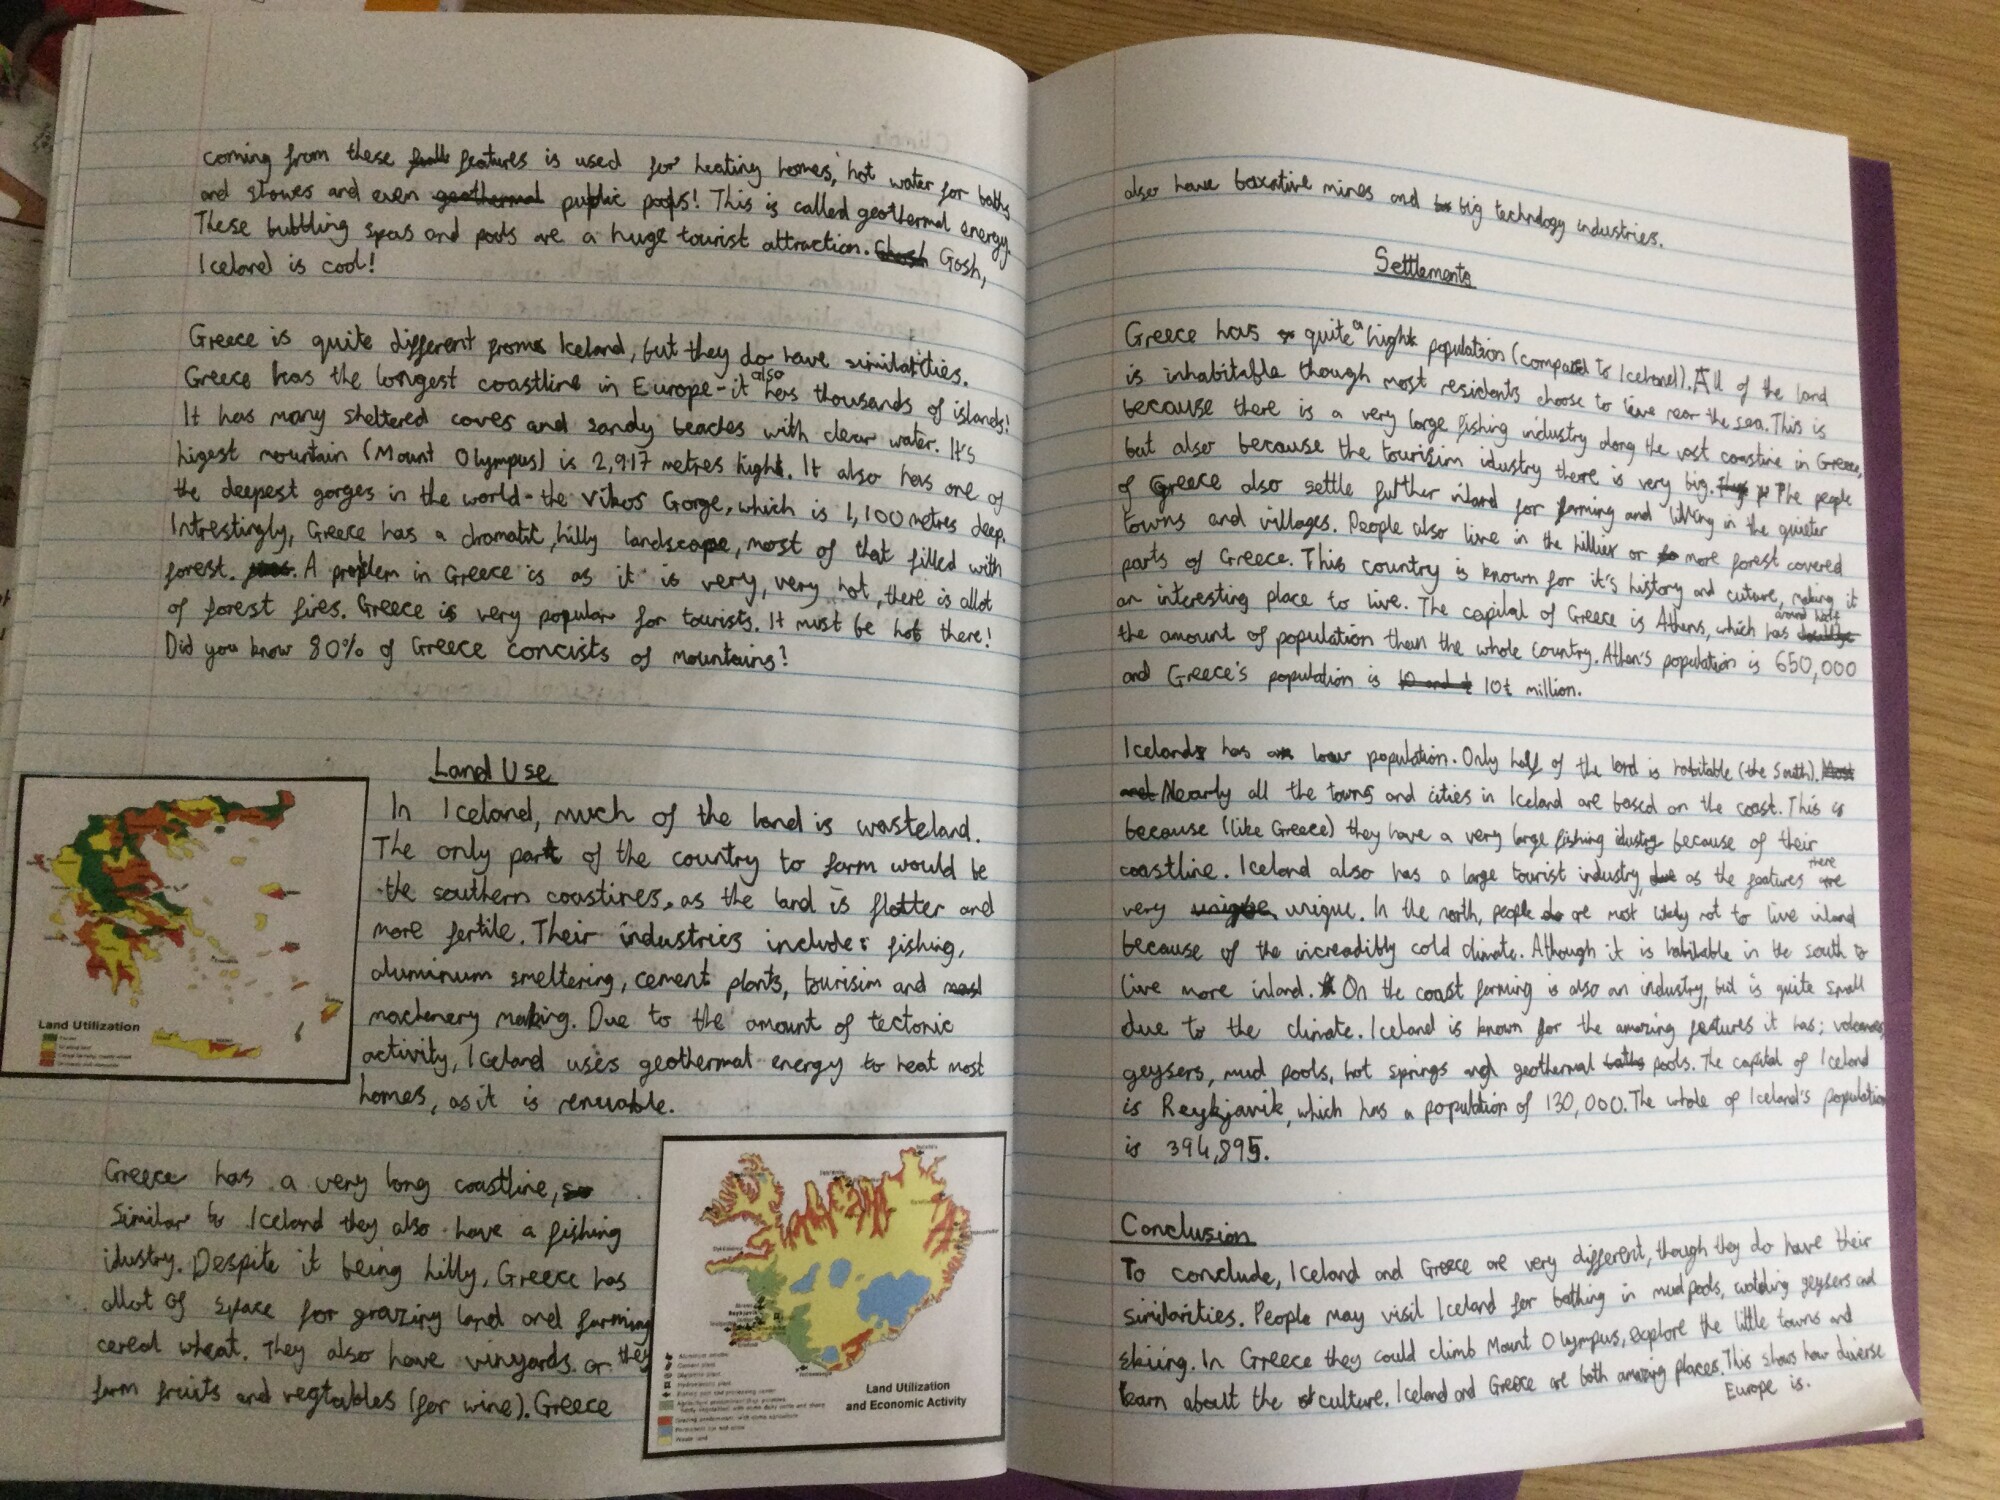 coming from these features is used for heating homes, hot water for baths
and stowes and even geothermal public pools! This is called geothermal energy.
These bubbling spas and pools are a huge tourist attraction. Gosh,
Iceland is cool!
Greece is quite different from Iceland, but they do have similarities.
Greece has the longest coastline in Europe - it also has thousands of islands!
It has many sheltered coves and sandy beaches with clear water. It's
higest mountain (Mount Olympus) is 2,917 metres hight. It also has one of
the deepest gorges in the world - the Vikos Gorge, which is 1,100 metres deep.
Intrestingly, Greece has a dramatic, hilly landscape, most of that filled with
forest. A problem in Greece is as it is very, very hot, there is allot
of forest fires. Greece is very popular for tourists. It must be hot there!
Did you know 80% of Greece concists of mountains?
Land Use
In Iceland, much of the land is wasteland.
The only part of the country to farm would be
the southern coastines, as the land is flatter and
more fertile. Their industries include: fishing,
aluminum smeltering, cement plants, tourisim and
machenery making. Due to the amount of tectonic
activity, Iceland uses geothermal energy to heat most
homes, as it is renuable.
Land Utilization
Greece has a very long coastline, so
similar to Iceland they also have a fishing
idustry. Despite it being hilly, Greece has
allot of space for grazing land and farming
cereal wheat. They also have vinyards or they
farm fruits and vegtables (for wine). Greece
Land Utilization
and Economic Activity
also have mines and big technology industries.
Settlements
Greece has quite a hight population (compared to Iceland). All of the land
is inhabitable though most residents choose to live near the sea. This is
because there is a very large fishing industry along the vast coastine in Greece,
but also because the tourisim idustry there is very big. The people
of Greece also settle further inland for farming and living in the quieter
towns and villages. People also live in the hillier or more forest covered
parts of Greece. This country is known for it's history and cuture, making it
an interesting place to live. The capital of Greece is Athens, which has around half
the amount of population than the whole country. Athen's population is 650,000
and Greece's population is 10 and 1 million.
Iceland has low population. Only half of the land is habitable (the South). Most
and Nearly all the towns and cities in Iceland are based on the coast. This is
because (like Greece) they have a very large fishing idustry because of their
coastline. Iceland also has a large tourist industry, due as the features there are
very unique unique. In the north, people do are most likely not to live inland
because of the increadibly cold climate. Athough it is habitable in the south to
live more inland. On the coast farming is also an industry, but is quite small
due to the climate. Iceland is known for the amazing features it has; volcanoes,
geysers, mud pools, hot springs and geothermal baths pools. The capital of Iceland
is Reykjavik, which has a population of 130,000. The whole of Iceland's population
is 394,895.
Conclusion
To conclude, Iceland and Greece are very different, though they do have their
similarities. People may visit Iceland for bathing in mudpools, watching geysers and
skiing. In Greece they could climb Mount Olympus, explore the little towns and
learn about the culture. Iceland and Greece are both amazing places. This shows how diverse
Europe is.